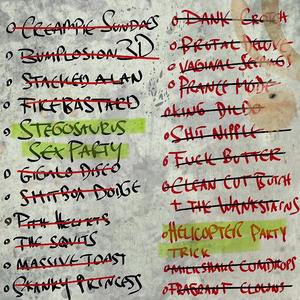 CREAMPIE SUNDAES
BUMPLOSION 3D
STACKED ALAN
FIREBASTARD
STEGOSAURUS
SEX PARTY
GIGOLO DISCO
SHITBOX DODGE
PITH HELMETS
THE SQUITS
MASSIVE TOAST
SKANKY PRINCESS
DANK CROTCH
BRUTAL DELUXE
VAGINAL
PRANCE MODE
KING DILDO
SHIT NIPPLE
FUCK BUTTER
CLEAN CUT BUTCH
+ THE WANKSTAINS
HELICOPTER PARTY
TRICK
MILKSHAKE GUMDROPS
FRAGRANT CLOWNS